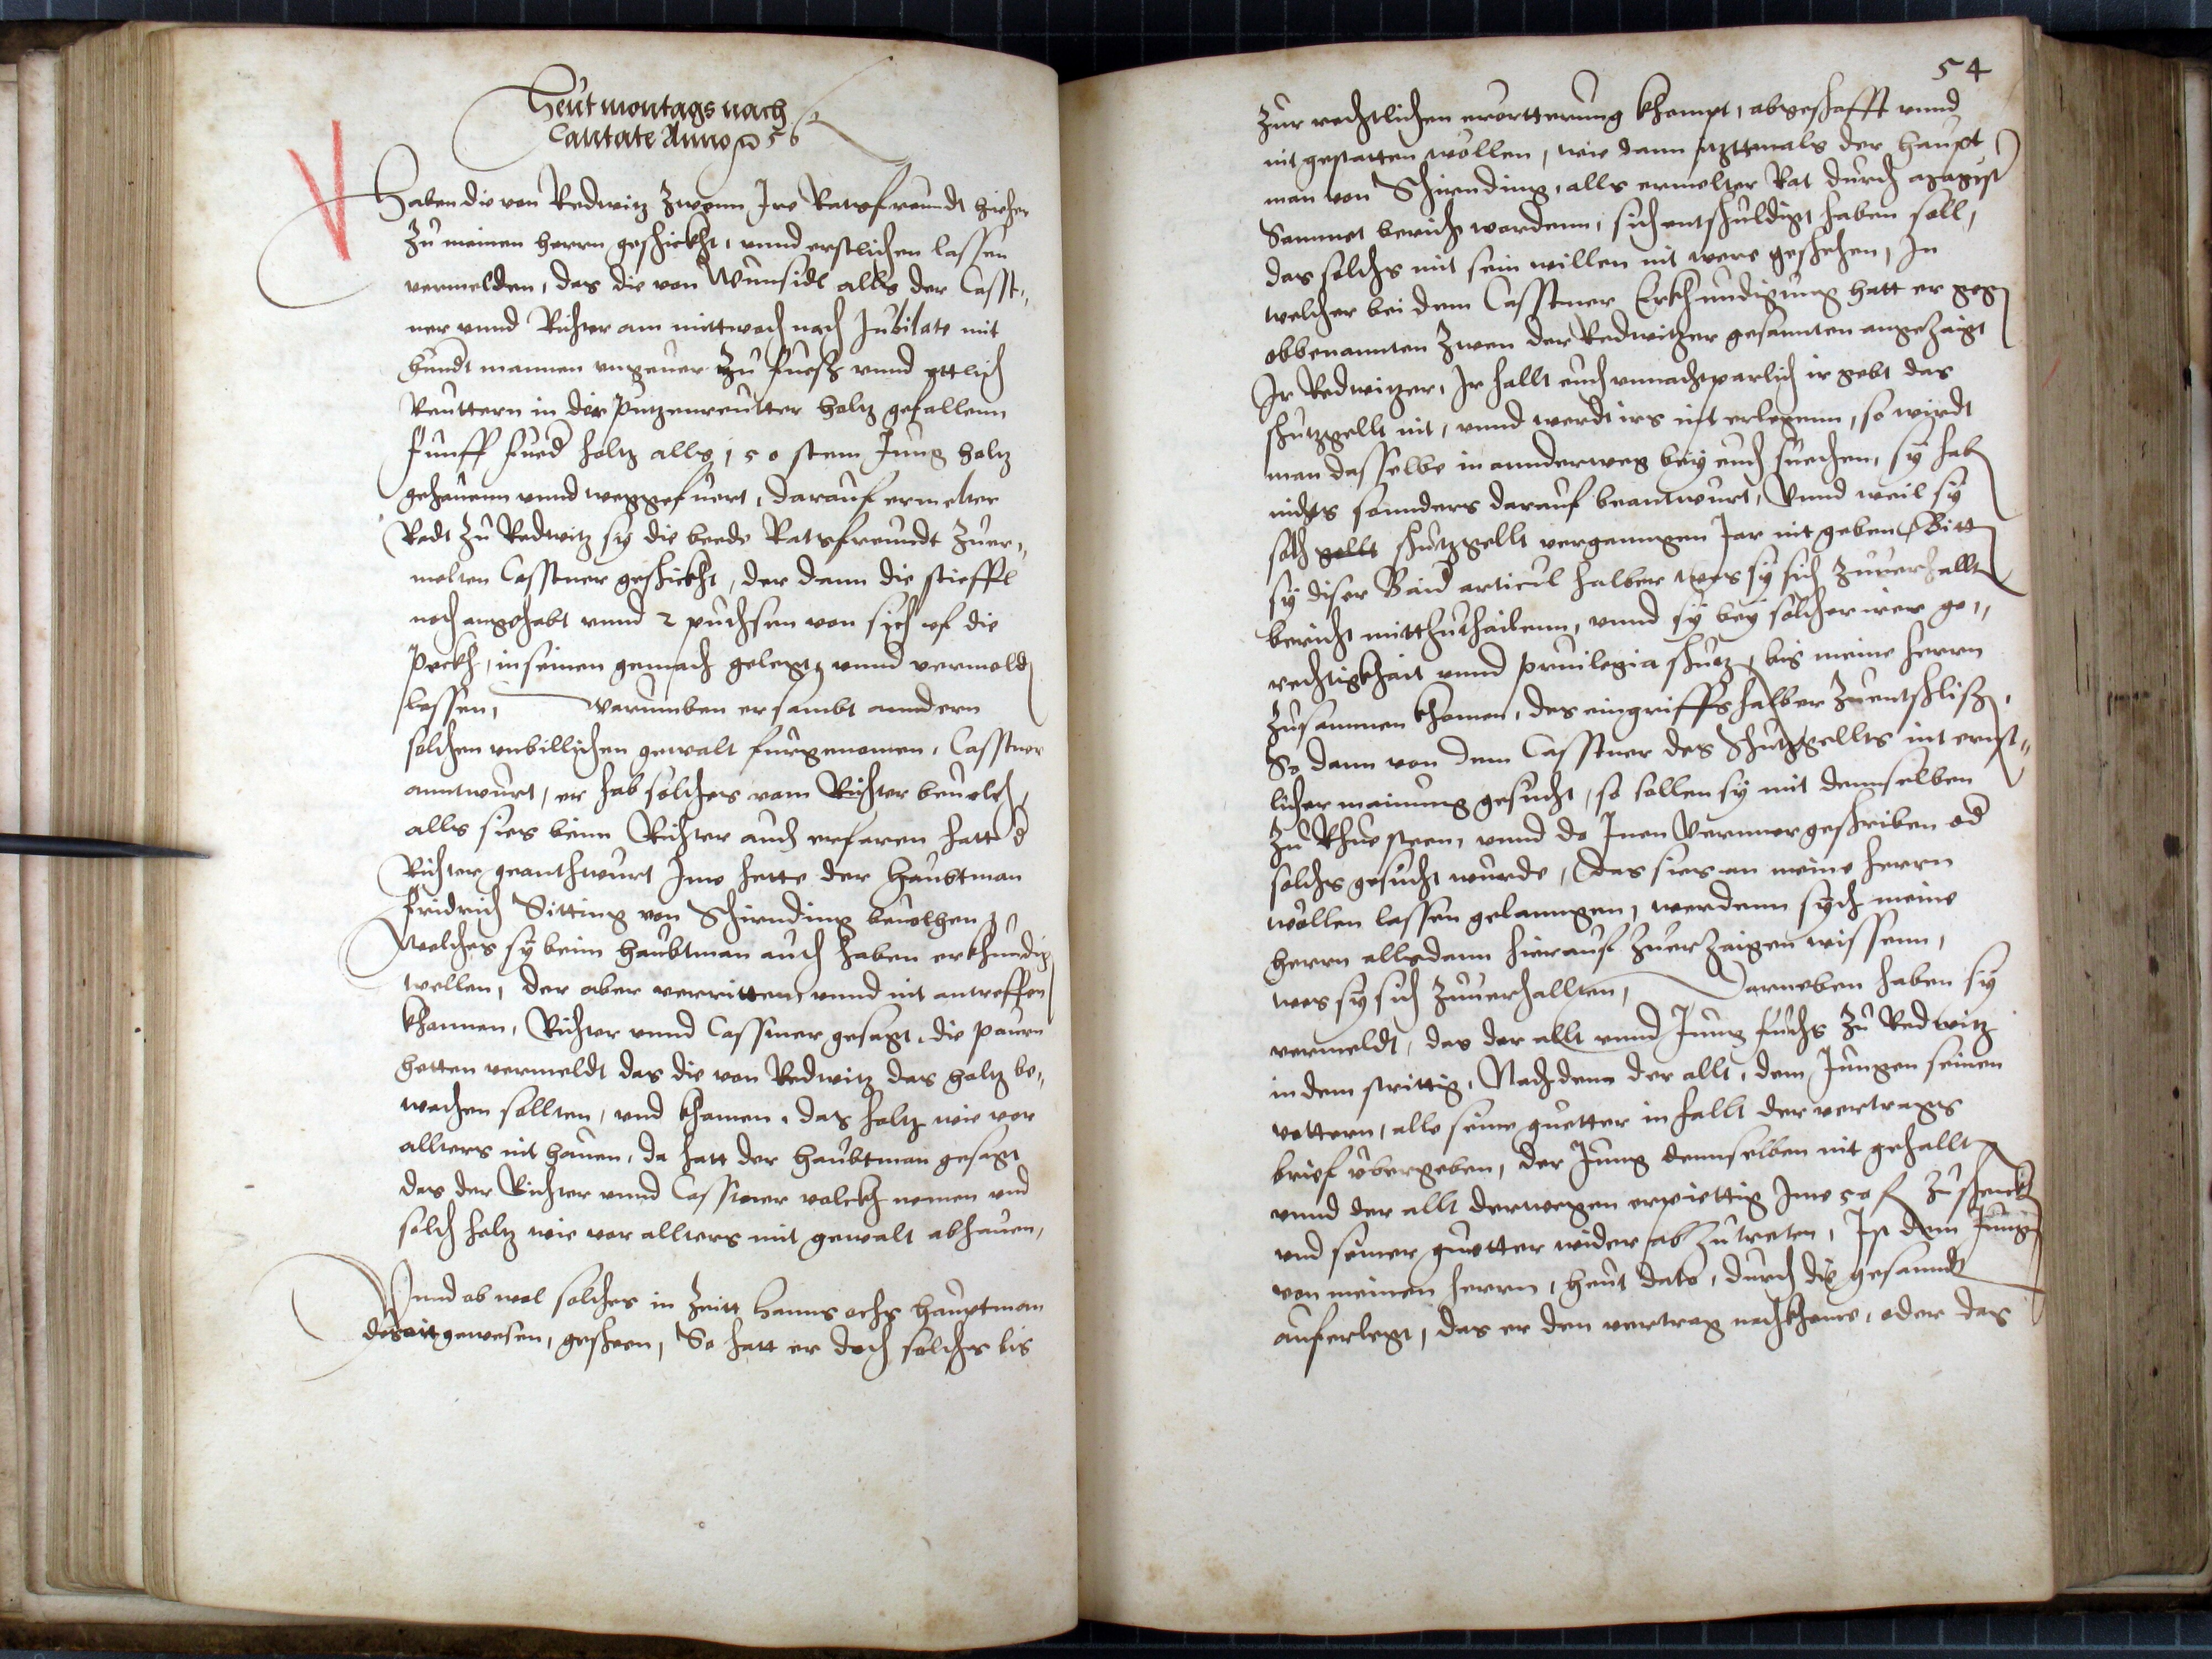 Heut montags nach
Cantate Anno 56
Haben die von Redwitz zwenn Ire Ratsfreundt hieher
zu meinen herrn geschickht, unnd erstlichen lassen
vermelden, das die von Wunsidl alls der Casst„
ner unnd Richter am mittwoch nach Jubilate mit
hundt mannen ungeuer zu fuess unnd ettlich
Reuttern in der putzenreutter holtz gefallenn
funff fued holtz alls 150 stem Jung holtz
gehauenn unnd weggefuert, darauf ermelter
Redt zu Redwitz sy die beede Ratsfreundt zuer„
melten Casstner geschickht, der dann die stieffl
noch angehabt unnd 2 puchsen von sich uf die
penkh, in seinen gemach gelegt unnd vermeld
lassen, Warumben er sambt anndern
solchen unbillichen gewalt furgenomen, Casstner
anntwurt, er hab solches vom Richter beuelch,
alls sies beim Richter auch erfaren hatt d
Richter geanthwurt Ime hette der Haubtman
fridrich Sitting von Schirnding beuolhen
Welches sy beim haubtman auch haben erkhundig
wellen, der aber verritten unnd nit antreffen
khonnen, Richter unnd Casstner gesagt, die paurn
hetten vermeldt das die von Redwitz das holtz be„
wachen sollten, und khonen das holtz wie vor
allters nit hauen, da hatt der haubtman gesagt
das der Richter unnd Casstner volckh nemen und
solch holtz wie vor allters mit gewalt abhauen,
Unnd ob wol solches in zeitt Hanns ochs hauptman
doselbst gewesen, gescheen, So hatt er doch solches bis
54
zur rechtlichen erortterung khompt, abgeschafft unnd
nit gestatten wollen, wie dann itzttmals der haupt
man von Schirnding, alls ermelter Rat durch
Sommet bericht wordenn, sich entschuldigt haben soll,
das solchs mit sein willen nit were geschehen, In
welcher bei dem Casstner Erkhundigung hatt er geg
obbenannten zwen der Redwitzer gesannten angezaigt
Ir Redwitzer, Ir hallt euch unnachparlich ir gebt das
schutzgellt nit, unnd werdt irs nit erlegenn, so wirdt
man dasselbe in annderweg bey euch suechen, sy hab
nichts sonnders darauf beantwurt, Unnd weil sy
solch gellt schutzgellt vergenngen Jar nit geben Bitt
sy diser Baid articul halber wes sy sich zuuerhallt
bericht mitthuthailenn, unnd sy bey solcher irer ge„
rechtigkhait unnd priuilegia schutz, bis meine herrn
zusammen khomen, des eingriffs halber zuentschliss,
So dann von dem Casstner des Schutzgellts nit ernst„
licher mainung gesucht, so sollen sy mit dennselben
zu Rhue steen, unnd do Inen vernner geschriben od
solchs gesucht wurde, das sies an meine herrn
wollen lassen gelanngen, werdenn sych meine
herrn allsdann hierauf zuerzaigen wissenn,
wes sy sich zuuerhallten, Darneben haben sy
vermeldt, das der allt unnd Jung fuchs zu Redwitz
in dem strittig, Nachdem der allt, dem Jungen seinen
vettern, alle seine guetter in hallt der vertrags
brief ubergeben, der Jung dennselben nit gehallt
unnd der allt derwegen erpiettig Ime 50 fl zuschenck
und seiner guetter wider abzutreten, Ist dem Jung
von meinen herrn, heut dato, durch die gesannd
auferlegt, das er den vertrag nachkhome, oder das